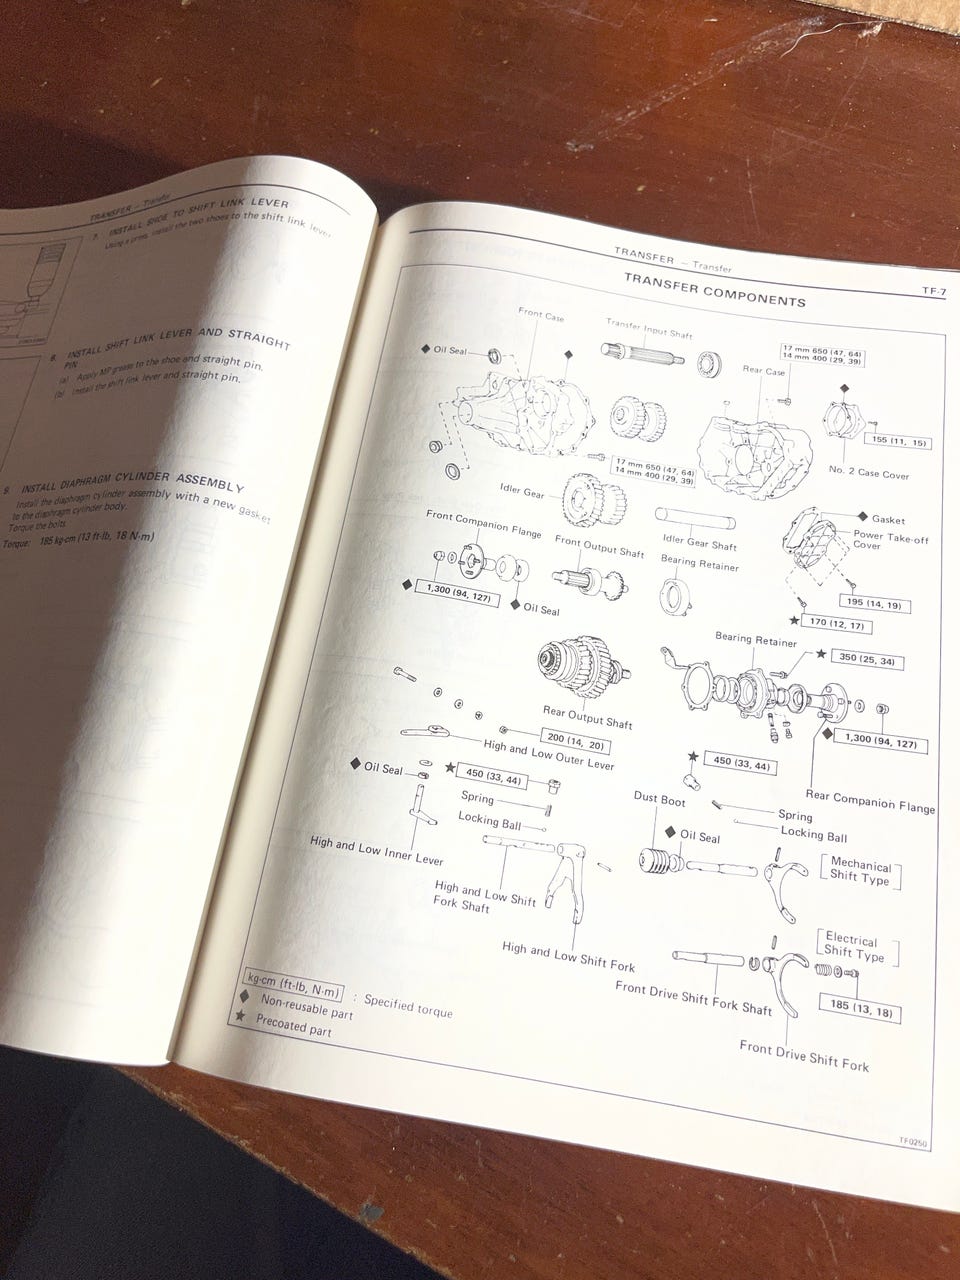 TRANSFER — Transfer
7. INSTALL SHOE TO SHIFT LINK LEVER
Using a press, install the two shoes to the shift link lever.
8. INSTALL SHIFT LINK LEVER AND STRAIGHT
PIN
(a) Apply MP grease to the shoe and straight pin.
(b) Install the shift link lever and straight pin.
9. INSTALL DIAPHRAGM CYLINDER ASSEMBLY
Install the diaphragm cylinder assembly with a new gasket
to the diaphragm cylinder body.
Torque the bolts.
Torque: 185 kg-cm (13 ft-lb, 18 N·m)
TRANSFER — Transfer
TF-7
TRANSFER COMPONENTS
Front Case
Transfer Input Shaft
17 mm 650 (47, 64)
14 mm 400 (29, 39)
◆ Oil Seal
◆
Rear Case
◆
155 (11, 15)
No. 2 Case Cover
17 mm 650 (47, 64)
14 mm 400 (29, 39)
Idler Gear
Idler Gear Shaft
◆ Gasket
Power Take-off
Cover
Front Companion Flange
Front Output Shaft
Bearing Retainer
◆ 1,300 (94, 127)
◆ Oil Seal
195 (14, 19)
★ 170 (12, 17)
Bearing Retainer
★ 350 (25, 34)
Rear Output Shaft
200 (14, 20)
High and Low Outer Lever
◆ 1,300 (94, 127)
★ 450 (33, 44)
◆ Oil Seal
★ 450 (33, 44)
Rear Companion Flange
Spring
Locking Ball
Dust Boot
Spring
Locking Ball
◆ Oil Seal
High and Low Inner Lever
[Mechanical
Shift Type]
High and Low Shift
Fork Shaft
High and Low Shift Fork
[Electrical
Shift Type]
Front Drive Shift Fork Shaft
185 (13, 18)
Front Drive Shift Fork
kg-cm (ft-lb, N·m) : Specified torque
◆ Non-reusable part
★ Precoated part
TF0250